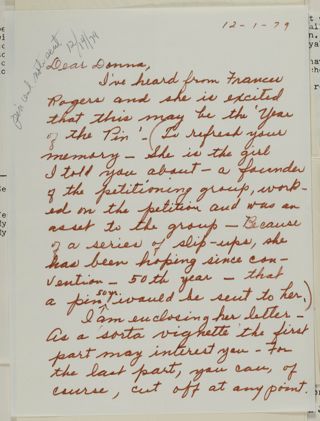 12-1-79
pin card not sent
12/14/79
Dear Donna,
I've heard from Frances
Rogers and she is excited
that this may be the 'Year
of the Pin' - (To refresh your
memory - She is the girl
I told you about - a founder
of the petitioning group, work-
ed on the petition and was an
asset to the group - Because
of a series of slip-ups, she
has been hoping since con-
vention - 50th year - that
a pin 50 yr. would be sent to her.)
I am enclosing her letter -
As a sorta vignette the first
part may interest you - For
the last part, you can, of
course, cut off at any point.